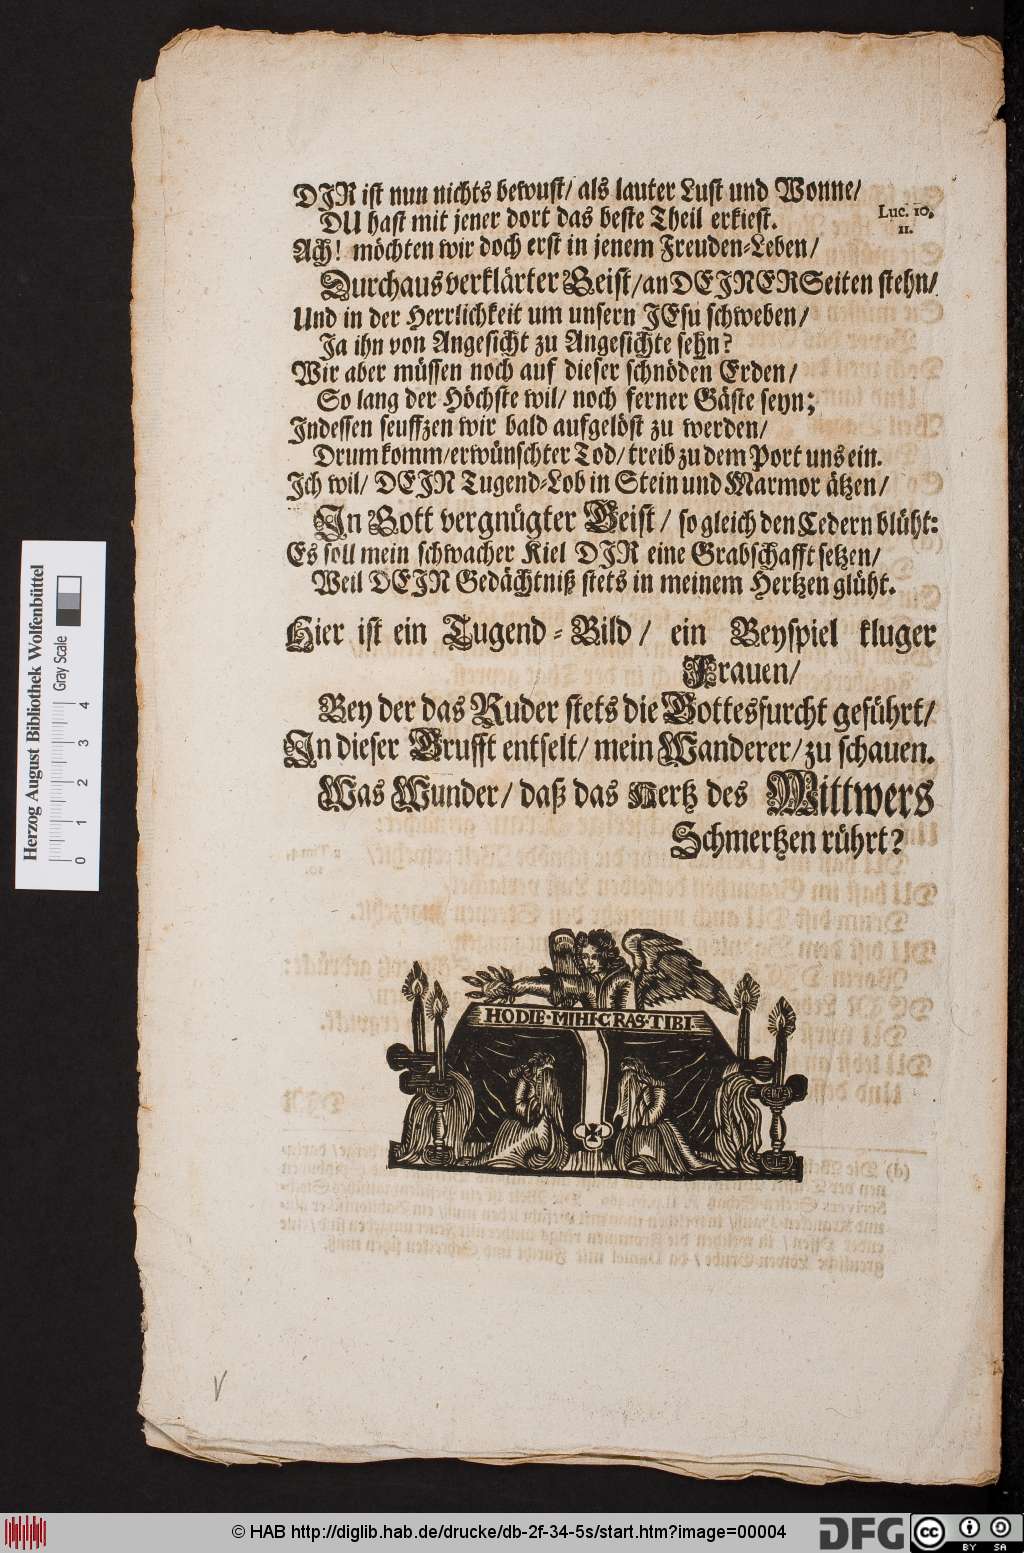 DJR ist nun nichts bewust/ als lauter Lust und Wonne/
DU hast mit jener dort das beste Theil erkiest.
Luc. 10.
11.
Ach! möchten wir doch erst in jenem Freuden-Leben/
Durchaus verklärter Geist/ an DEJNER Seiten stehn/
Und in der Herrlichkeit um unsern JEsu schweben/
Ja ihn von Angesicht zu Angesichte sehn?
Wir aber müssen noch auf dieser schnöden Erden/
So lang der Höchste wil/ noch ferner Gäste seyn;
Indessen seuffzen wir bald aufgelöst zu werden/
Drum komm/ erwünschter Tod/ treib zu dem Port uns ein.
Ich wil/ DEJN Tugend-Lob in Stein und Marmor ätzen/
In Gott vergnügter Geist/ so gleich den Cedern blüht:
Es soll mein schwacher Kiel DJR eine Grabschafft setzen/
Weil DEJN Gedächtniß stets in meinem Hertzen glüht.
Hier ist ein Tugend-Bild/ ein Beyspiel kluger
Frauen/
Bey der das Ruder stets die Gottesfurcht geführt/
In dieser Grufft entselt/ mein Wanderer/ zu schauen.
Was Wunder/ daß das Hertz des Wittwers
Schmertzen rührt?
HODIE·MIHI·CRAS·TIBI
V
Herzog August Bibliothek Wolfenbüttel
Gray Scale
0 1 2 3 4
© HAB http://diglib.hab.de/drucke/db-2f-34-5s/start.htm?image=00004
DFG
cc BY SA